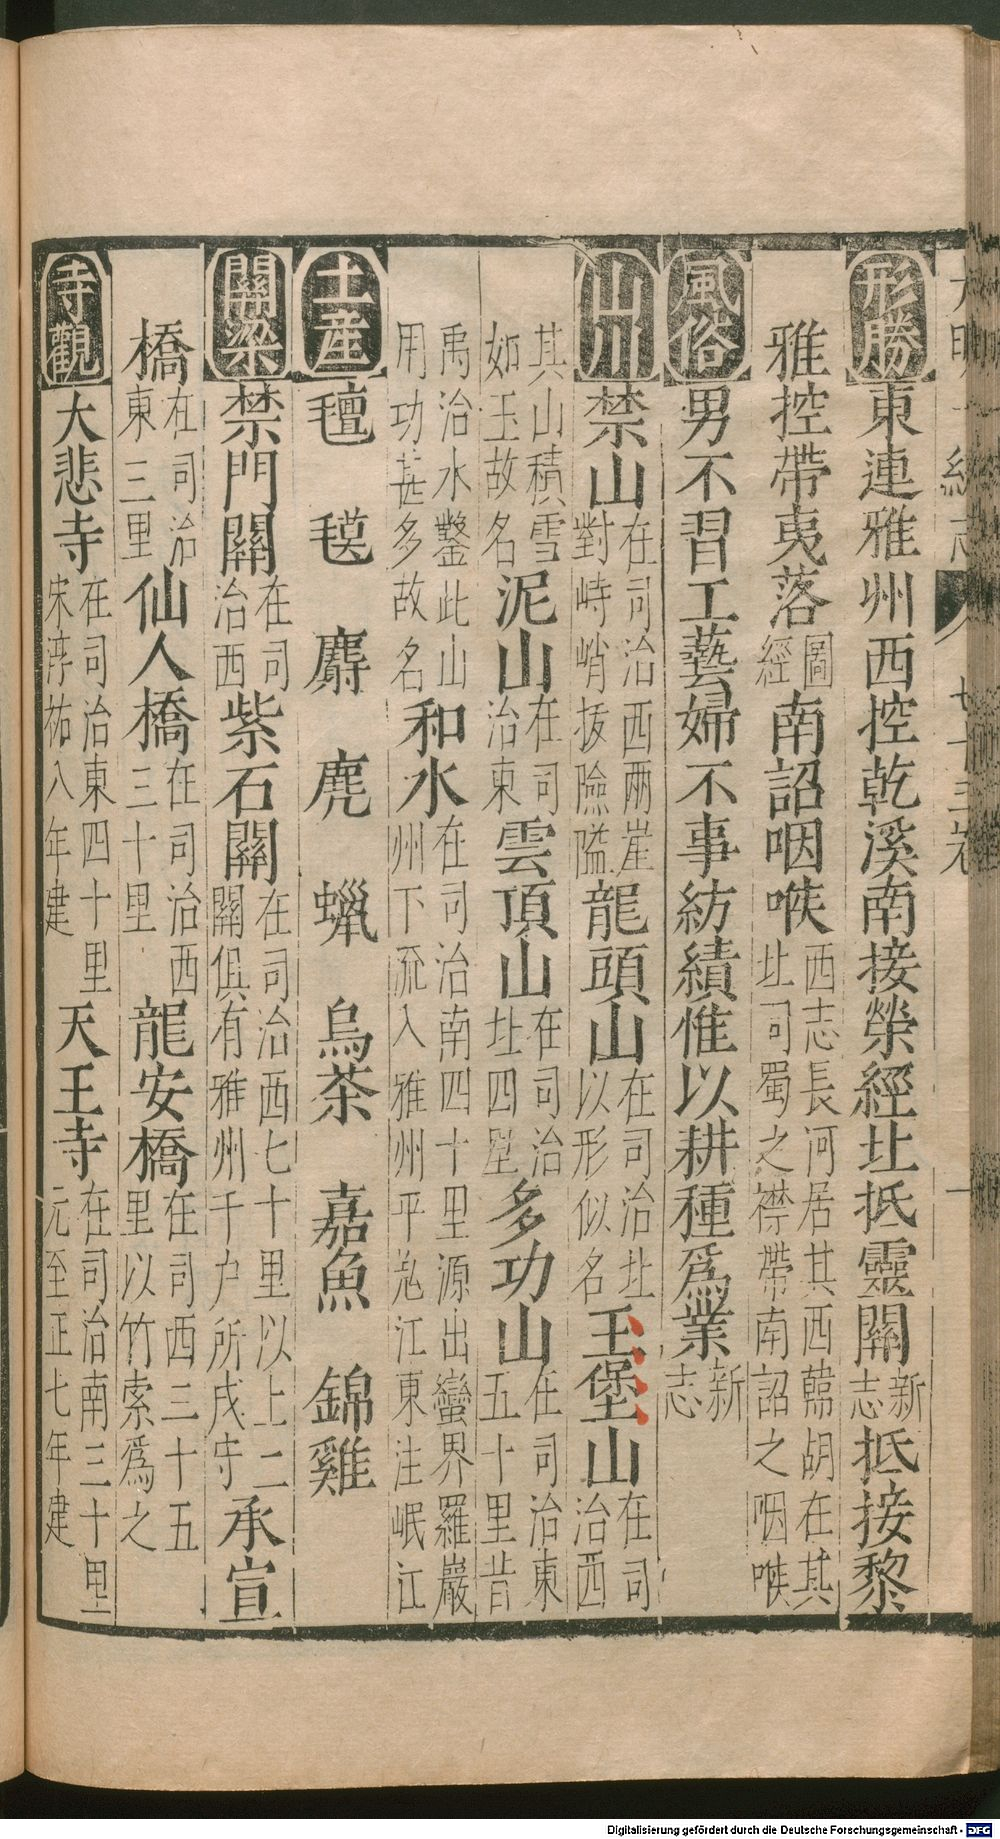 形勝東連雅州西控乾溪南接滎經北抵靈關新志抵接黎
雅控帶夷落圖經南詔咽喉西志長河居其西韓胡在其北司蜀之襟帶南詔之咽喉
風俗男不習工藝婦不事紡績惟以耕種爲業新志
山川禁山在司治西兩崖對峙峭拔險隘龍頭山在司治北以形似名玉堡山在司治西
其山積雪如玉故名泥山在司治東雲頂山在司治北四里多功山在司治東五十里昔
禹治水鑿此山用功甚多故名和水在司治南四十里源出蠻界羅巖州下流入雅州平羌江東注岷江
土產氊 毯 麝 麂 蠟 烏茶 嘉魚 錦雞
關梁禁門關在司治西紫石關在司治西七十里以上二關俱有雅州千户所戍守承宣
橋在司治東三里仙人橋在司治西三十里龍安橋在司西三十五里以竹索爲之
寺觀大悲寺在司治東四十里宋淳祐八年建天王寺在司治南三十里元至正七年建
Digitalisierung gefördert durch die Deutsche Forschungsgemeinschaft - DFG